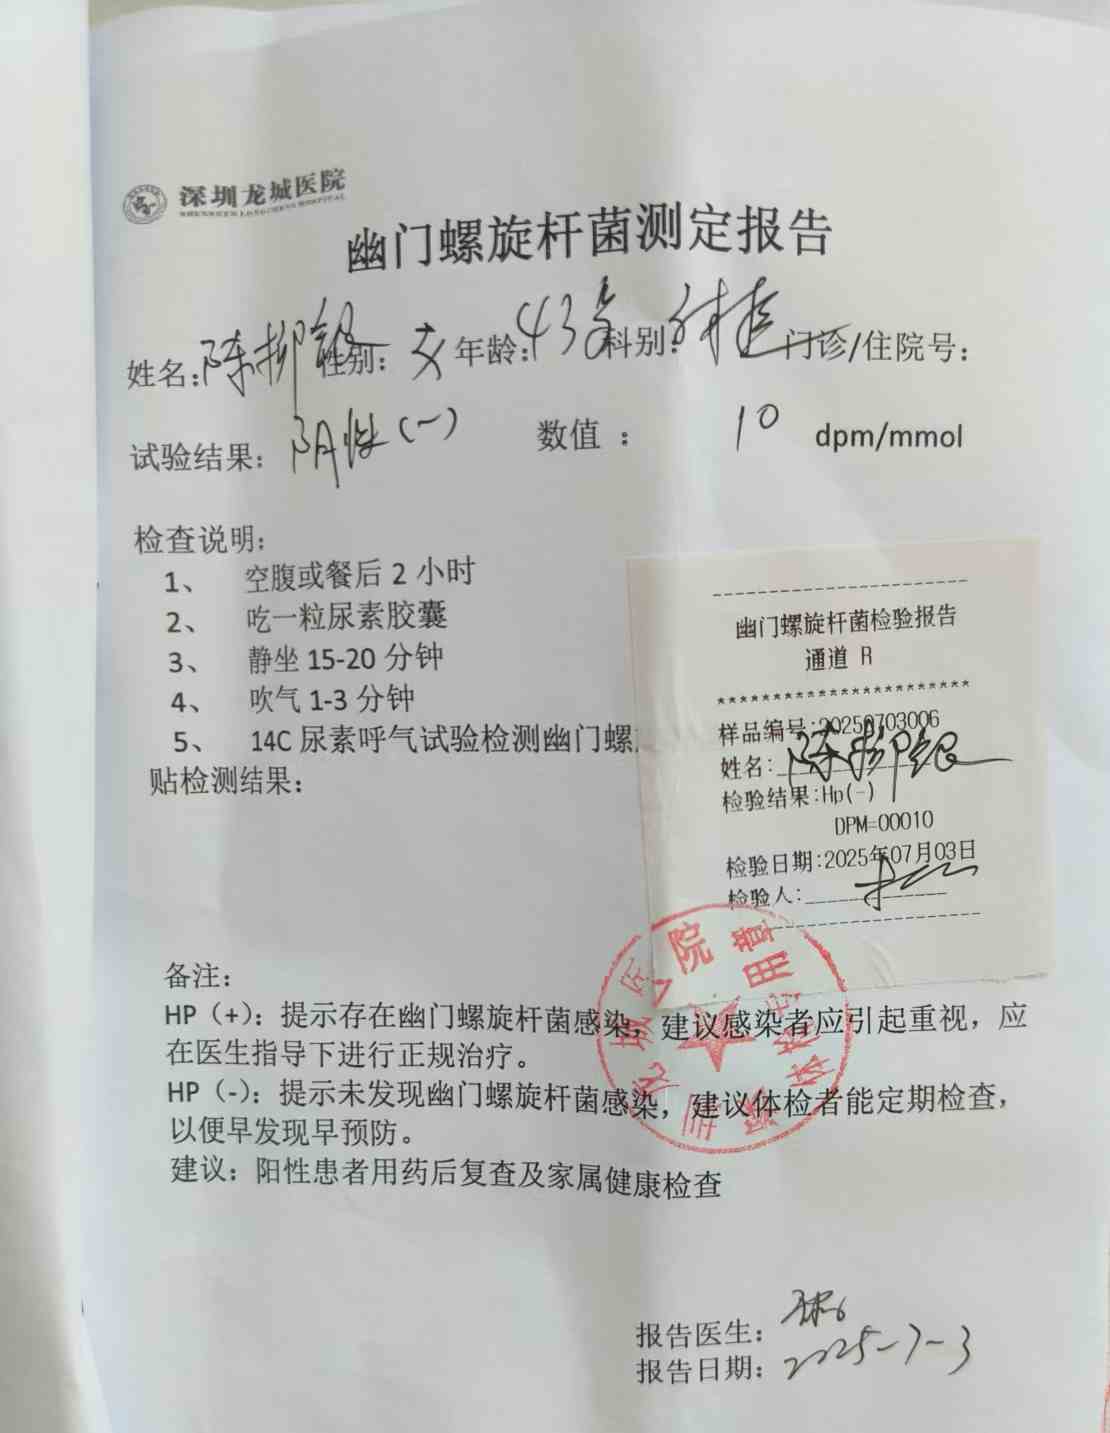 深圳龙城医院
幽门螺旋杆菌测定报告
姓名：陈柳银 性别：女 年龄：43岁 科别：体检 门诊/住院号：
试验结果：阴性(-) 数值： 10 dpm/mmol
检查说明：
1、 空腹或餐后 2 小时
2、 吃一粒尿素胶囊
3、 静坐 15-20 分钟
4、 吹气 1-3 分钟
5、 14C 尿素呼气试验检测幽门螺
贴检测结果：
幽门螺旋杆菌检验报告
通道 R
************************
样品编号:20250703006
姓名:陈柳银
检验结果:Hp(-)
DPM=00010
检验日期:2025年07月03日
检验人:
备注：
HP（+）：提示存在幽门螺旋杆菌感染，建议感染者应引起重视，应
在医生指导下进行正规治疗。
HP（-）：提示未发现幽门螺旋杆菌感染，建议体检者能定期检查，
以便早发现早预防。
建议：阳性患者用药后复查及家属健康检查
报告医生：
报告日期：2025-7-3